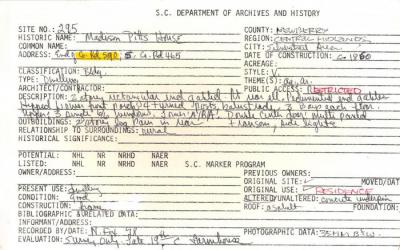 S.C. DEPARTMENT OF ARCHIVES AND HISTORY
SITE NO.: 295
COUNTY: NEWBERRY
HISTORIC NAME: Madison Pitts House
REGION: CENTRAL MIDLANDS
COMMON NAME:
CITY: Area
ADDRESS: End Co Rd 590, Co. Rd 465
DATE OF CONSTRUCTION: C. 1860
ACREAGE:
CLASSIFICATION: Bldg.
STYLE: V.
TYPE: Dwelling
THEME(S):
ARCHITECT/CONTRACTOR:
PUBLIC ACCESS: RESTRICTED
DESCRIPTION: 2 story rectangular end gabled rear ell. Pedimented end gables
Hipped 1 over front porch 4 turned posts, balustrade, 3 bays each floor.
windows. Double center door
OUTBUILDINGS: 2 story log barn in rear + transom, side lights
RELATIONSHIP TO SURROUNDINGS: rural
HISTORICAL SIGNIFICANCE:
POTENTIAL: NHL NR NRHD NAER
LISTED: NHL NR NRHD NAER S.C. MARKER PROGRAM
OWNER/ADDRESS:
PREVIOUS OWNERS:
ORIGINAL SITE: ✓ MOVED:
PRESENT USE: Dwelling
ORIGINAL USE: RESIDENCE
CONDITION: Good
ALTERED/UNALTERED: concrete underpin
CONSTRUCTION: frame
ROOF: asphalt FOUNDATION:
BIBLIOGRAPHIC & RELATED DATA:
INFORMANT/ADDRESS:
RECORDED BY/DATE: N. Fox '78
PHOTOGRAPHIC DATA: 35MM B&W
EVALUATION: Survey Only Late 19th C farmhouse